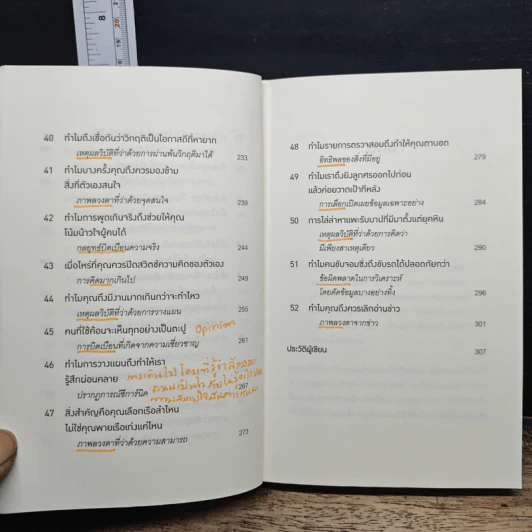 8
20
19
40 ทำไมถึงเชื่อกันว่าวิกฤติเป็นโอกาสดีที่หายาก
เหตุผลวิบัติที่ว่าด้วยการผ่านพ้นวิกฤติมาได้ 233
41 ทำไมบางครั้งคุณถึงควรมองข้าม
สิ่งที่ตัวเองสนใจ
ภาพลวงตาที่ว่าด้วยจุดสนใจ 239
42 ทำไมการพูดเกินจริงถึงช่วยให้คุณ
โน้มน้าวใจผู้คนได้
กลยุทธ์บิดเบือนความจริง 244
43 เมื่อไหร่ที่คุณควรปิดสวิตช์ความคิดของตัวเอง
การคิดมากเกินไป 250
44 ทำไมคุณถึงมีงานมากเกินกว่าจะทำไหว
เหตุผลวิบัติที่ว่าด้วยการวางแผน 255
45 คนที่ใช้ค้อนจะเห็นทุกอย่างเป็นตะปู Opinion
การบิดเบือนที่เกิดจากความเชี่ยวชาญ 261
46 ทำไมการวางแผนถึงทำให้เรา
รู้สึกผ่อนคลาย
ปรากฏการณ์ซีการ์นิค 267
47 สิ่งสำคัญคือคุณเลือกเรือลำไหน
ไม่ใช่คุณพายเรือเก่งแค่ไหน
ภาพลวงตาที่ว่าด้วยความสามารถ 273
48 ทำไมรายการตรวจสอบถึงทำให้คุณตาบอด
อิทธิพลของสิ่งที่มีอยู่ 279
49 ทำไมเราถึงยิงลูกศรออกไปก่อน
แล้วค่อยวาดเป้าทีหลัง
การเลือกเปิดเผยข้อมูลเฉพาะอย่าง 284
50 การไล่ล่าหาแพะรับบาปที่มีมาตั้งแต่ยุคหิน
เหตุผลวิบัติที่ว่าด้วยการคิดว่า
มีเพียงสาเหตุเดียว 290
51 ทำไมคนขับจอมซิ่งถึงขับรถได้ปลอดภัยกว่า
ข้อผิดพลาดในการวิเคราะห์
โดยตัดข้อมูลบางอย่างทิ้ง 296
52 ทำไมคุณถึงควรเลิกอ่านข่าว
ภาพลวงตาจากข่าว 301
ประวัติผู้เขียน 307